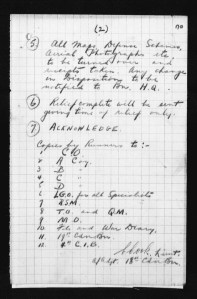 (2)
(5) All Maps, Defence Schemes,
Aerial Photographs etc
to be turned over and
receipts taken. Any change
in Dispositions to be
notified to Bn. H.Q.
(6) Relief complete will be sent
giving time of relief only.
(7) ACKNOWLEDGE.
Copies by Runners to :-
1 C.O
2 A Coy.
3 B "
4 C "
5 D "
6 I.G.O. for all Specialists
7 RSM.
8 T.O. and QM.
9 M.O.
10 File and War Diary.
11 19th Can Bn
12 4th C.I.B.
Lieut.
a/Adjt. 18th Can Bn.